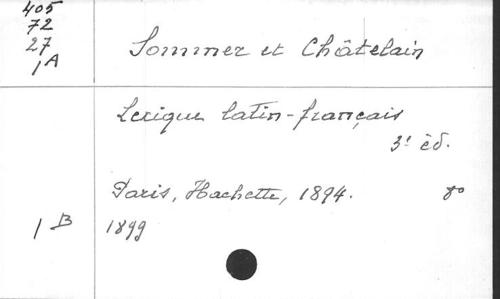 405
72
27
1A
Sommer et Châtelain
Lexique latin-français
3e éd.
Paris, Hachette, 1894. 8o
1B 1899